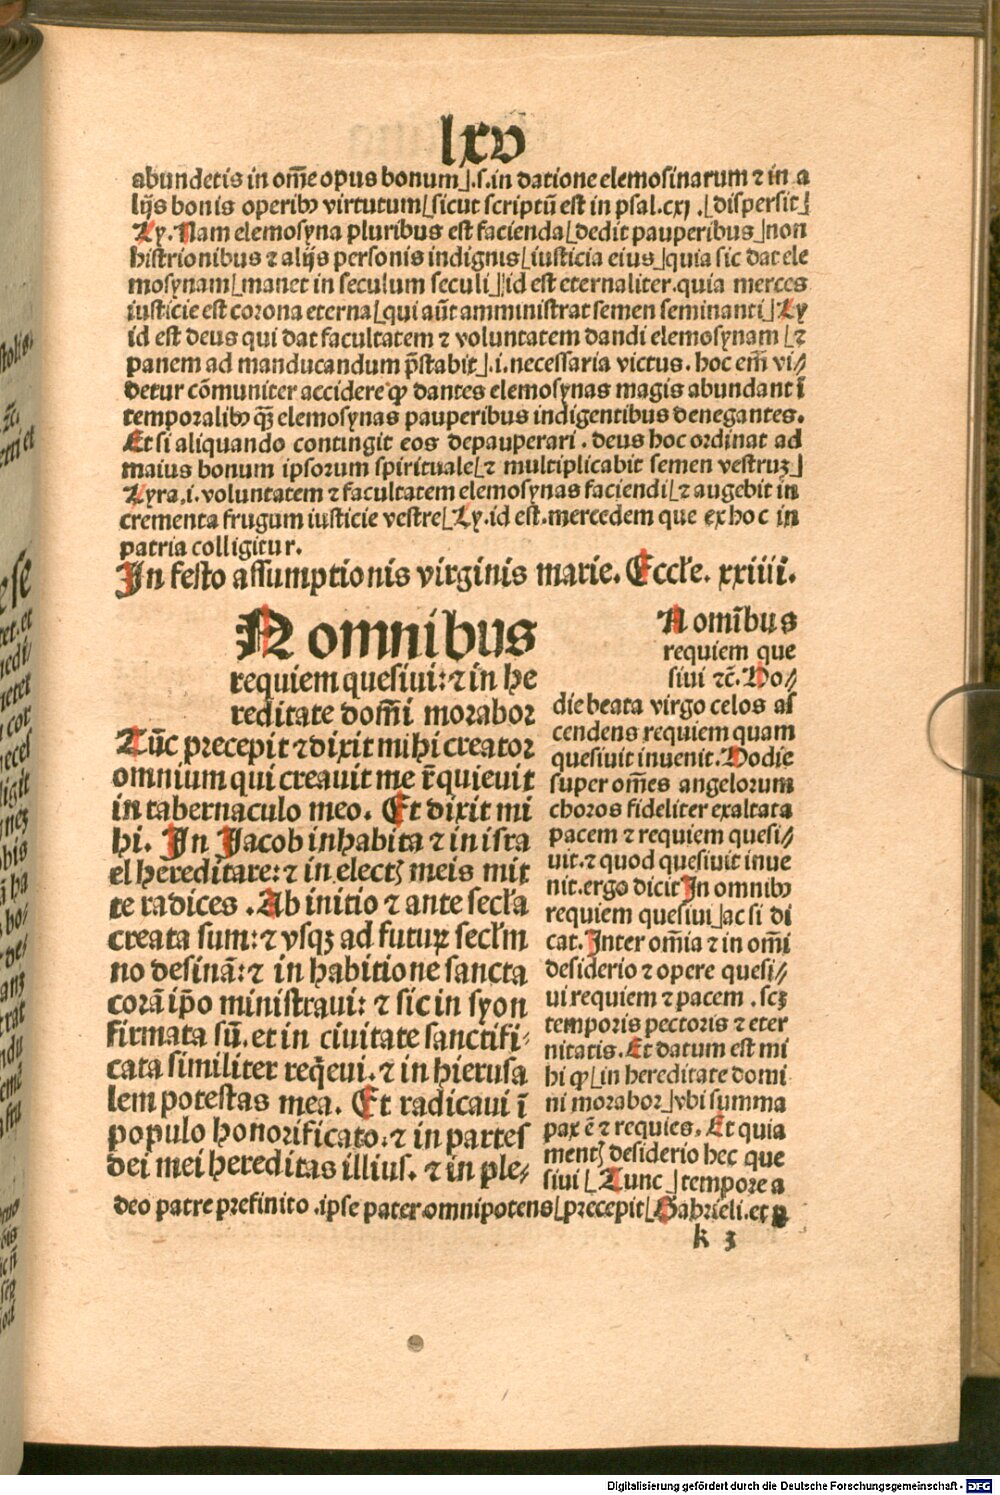 lxv
abundetis in om̄e opus bonum⌋.s.in datione elemosinarum ⁊ in a
lijs bonis operibꝰ virtutum⌊sicut scriptū est in psal.cxj .⌊dispersit⌋
Ly. Nam elemosyna pluribus est facienda⌊dedit pauperibus⌋non
histrionibus ⁊ alijs personis indignis⌊iusticia eius⌋quia sic dat ele
mosynam⌊manet in seculum seculi⌋id est eternaliter.quia merces
iusticie est corona eterna⌊qui aūt amministrat semen seminanti⌋Ly
id est deus qui dat facultatem ⁊ voluntatem dandi elemosynam ⌊⁊
panem ad manducandum p̄stabit⌋.i.necessaria victus. hoc em̄ vi⸗
detur cōmuniter accidere ꝙ dantes elemosynas magis abundant ī
temporalibꝰ qȝ elemosynas pauperibus indigentibus denegantes.
Et si aliquando contingit eos depauperari . deus hoc ordinat ad
maius bonum ipsorum spirituale⌊⁊ multiplicabit semen vestruȝ⌋
Lyra.i. voluntatem ⁊ facultatem elemosynas faciendi⌊⁊ augebit in
crementa frugum iusticie vestre⌊Ly.id est.mercedem que ex hoc in
patria colligitur.
In festo assumptionis virginis marie. Eccƚe. xxiiii.
N omnibus
requiem quesiui:⁊ in he
reditate dom̄i morabor
Tūc precepit ⁊ dixit mihi creator
omnium qui creauit me r̄quieuit
in tabernaculo meo. Et dixit mi
hi. In Jacob inhabita ⁊ in isra
el hereditare:⁊ in elect̄ meis mit
te radices .Ab initio ⁊ ante secƚa
creata sum:⁊ vsqȝ ad futuꝝ secƚm
no desinā:⁊ in habitione sancta
corā ip̄o ministraui: ⁊ sic in syon
firmata sū.et in ciuitate sanctifi⸗
cata similiter req̄eui.⁊ in hierusa
lem potestas mea. Et radicaui ī
populo honorificato.⁊ in partes
dei mei hereditas illius. ⁊ in ple⸗
N om̄ibus
requiem que
siui ⁊c̄. Ho⸗
die beata virgo celos as
cendens requiem quam
quesiuit inuenit. Hodie
super om̄es angelorum
choros fideliter exaltata
pacem ⁊ requiem quesi⸗
uit.⁊ quod quesiuit inue
nit.ergo dicit In omnibꝰ
requiem quesiui⌋ac si di
cat. Inter om̄ia ⁊ in om̄i
desiderio ⁊ opere quesi⸗
ui requiem ⁊ pacem .scȝ
temporis pectoris ⁊ eter
nitatis. Et datum est mi
hi ꝙ⌊in hereditate domi
ni morabor⌋vbi summa
pax ē ⁊ requies. Et quia
ment̄ desiderio hec que
siui ⌊Tunc⌋tempore a
deo patre prefinito .ipse pater omnipotens⌊precepit⌊Gabrieli.et
k 3
Digitalisierung gefördert durch die Deutsche Forschungsgemeinschaft - DFG